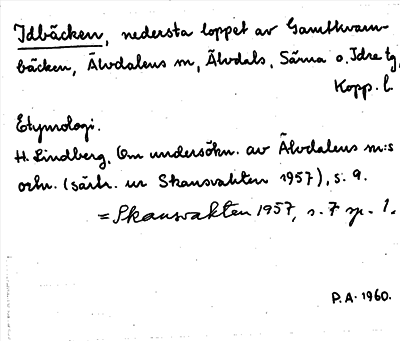 Idbäcken, nedersta loppet av Gamtkvarn-
bäcken, Älvdalens m, Älvdals, Särna o. Idre tg,
Kopp. l.
Etymologi.
H. Lindberg, Om undersökn. av Älvdalens m:s
ortn. (särtr. ur Skansvakten 1957), s. 9.
= Skansvakten 1957, s. 7 sp. 1.
P.A. 1960.